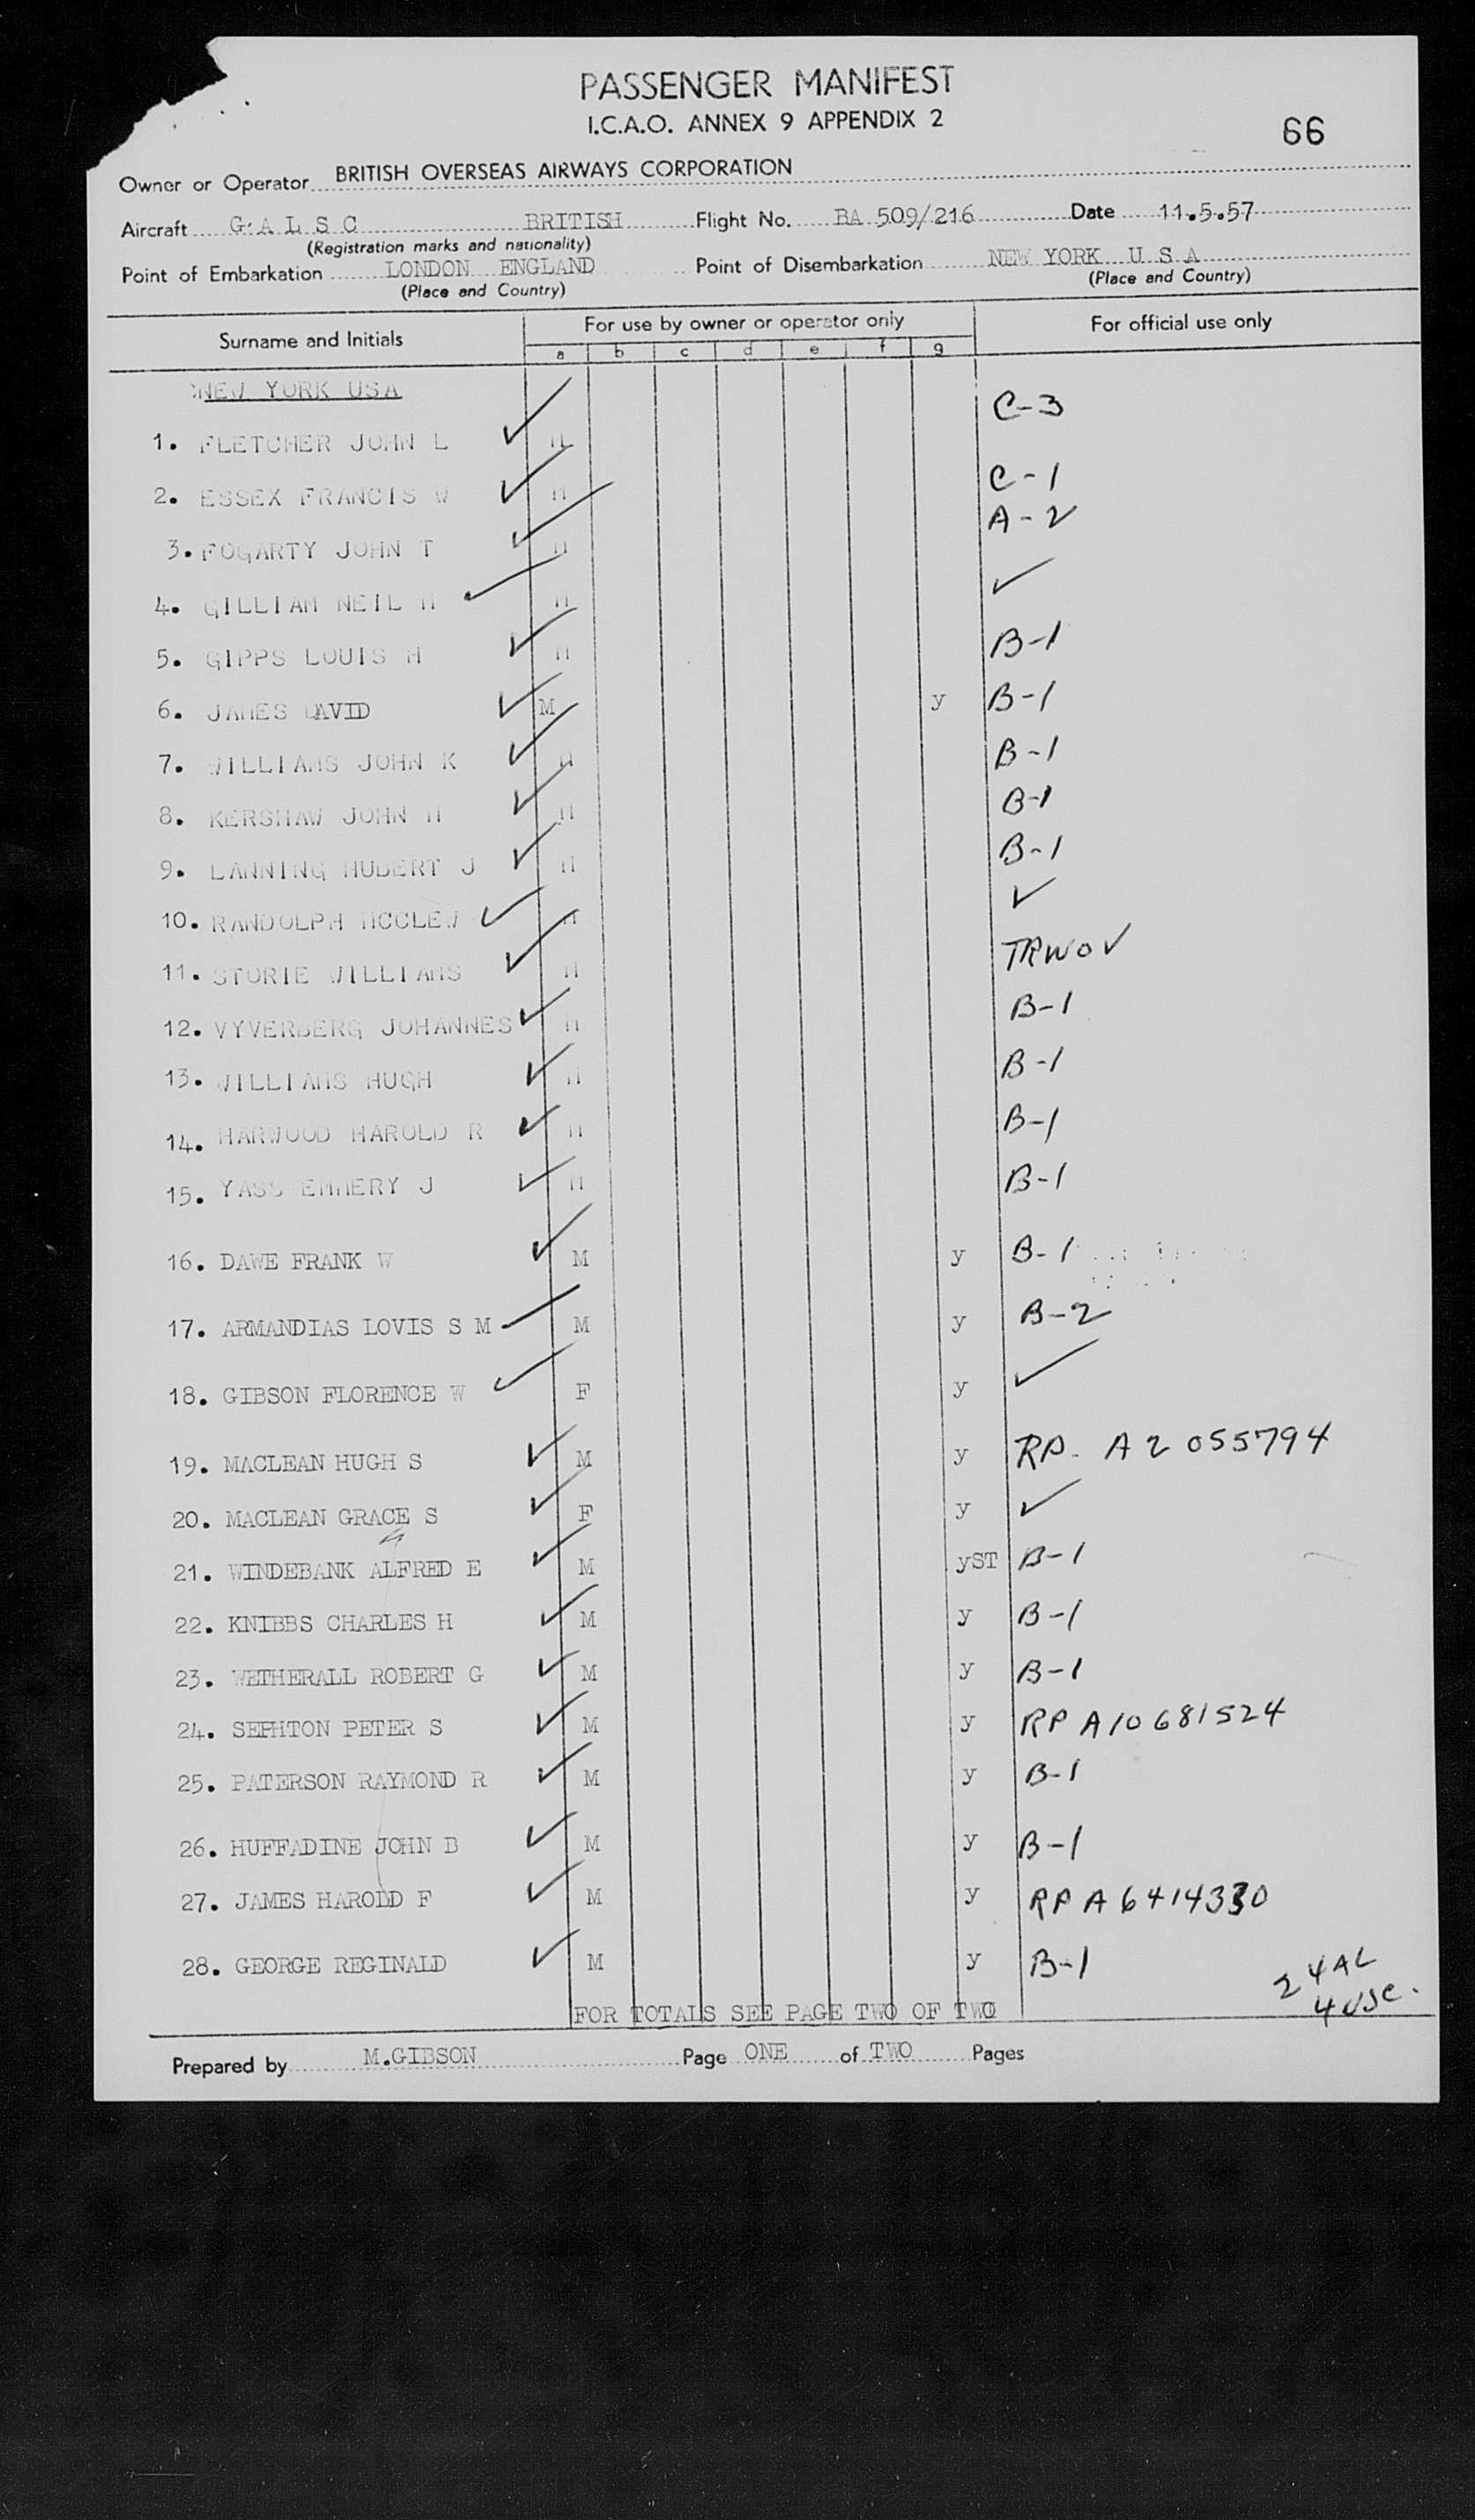 PASSENGER MANIFEST
I.C.A.O. ANNEX 9 APPENDIX 2
66
Owner or Operator BRITISH OVERSEAS AIRWAYS CORPORATION
Aircraft G.A L S C BRITISH Flight No. BA 509/216 Date 11.5.57
(Registration marks and nationality)
Point of Embarkation LONDON ENGLAND Point of Disembarkation NEW YORK U S A
(Place and Country) (Place and Country)
Surname and Initials For use by owner or operator only For official use only
a b c d e f g
NEW YORK USA
1. FLETCHER JOHN L ✓ M C-3
2. ESSEX FRANCIS W ✓ M C-1
3. FOGARTY JOHN T ✓ M A-2
4. GILLIAM NEIL M ✓ M ✓
5. GIPPS LOUIS H ✓ M B-1
6. JAMES DAVID ✓ M y B-1
7. WILLIAMS JOHN K ✓ M B-1
8. KERSHAW JOHN H ✓ M B-1
9. LANNING HUBERT J ✓ M B-1
10. RANDOLPH MCCLEW ✓ M ✓
11. STORIE WILLIAMS ✓ M TRWOV
12. VYVERBERG JOHANNES ✓ M B-1
13. WILLIAMS HUGH ✓ M B-1
14. HARWOOD HAROLD R ✓ M B-1
15. YASS EMMERY J ✓ M B-1
16. DAWE FRANK W ✓ M y B-1
17. ARMANDIAS LOVIS S M ✓ M y B-2
18. GIBSON FLORENCE W ✓ F y ✓
19. MACLEAN HUGH S ✓ M y RP- A2 055794
20. MACLEAN GRACE S ✓ F y ✓
21. WINDEBANK ALFRED E ✓ M yST B-1
22. KNIBBS CHARLES H ✓ M y B-1
23. WETHERALL ROBERT G ✓ M y B-1
24. SEPHTON PETER S ✓ M y RP A10 681524
25. PATERSON RAYMOND R ✓ M y B-1
26. HUFFADINE JOHN B ✓ M y B-1
27. JAMES HAROLD F ✓ M y RP A6414330
28. GEORGE REGINALD ✓ M y B-1
24 AL
4 USC.
FOR TOTALS SEE PAGE TWO OF TWO
Prepared by M.GIBSON Page ONE of TWO Pages